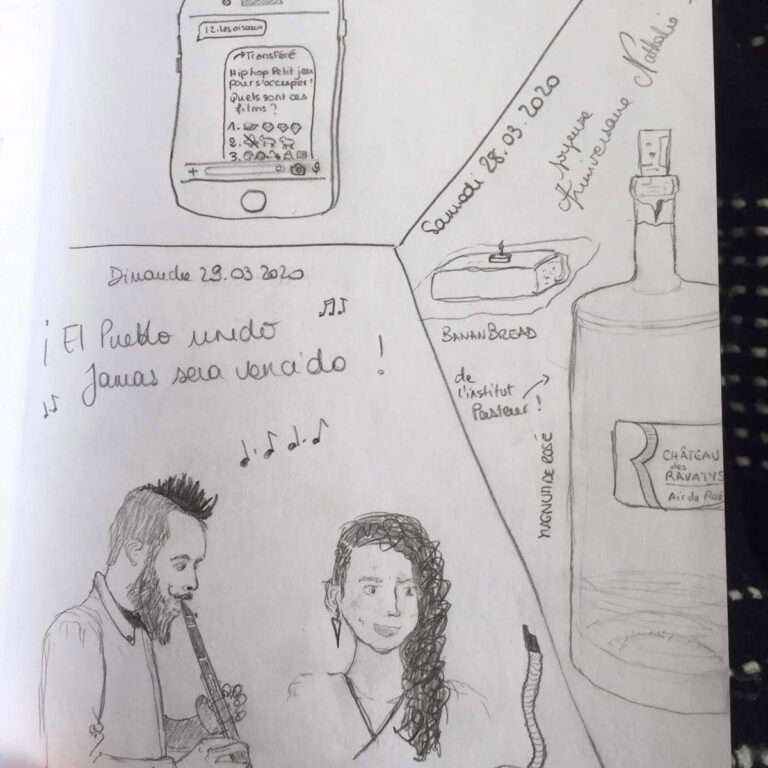 12. Les oiseaux
Transféré
Hip hop Petit jeu
pour s'occuper!
Quels sont ces
films?
1.
2.
3.
+
Samedi 28.03.2020
Joyeuse
Anniversaire Nathalie
BANANBREAD
de
l'institut
Pasteur!
MAGNUM DE ROSÉ
R
CHÂTEAU
des
RAVATYS
Air de Rosé
Dimanche 29.03.2020
¡El Pueblo unido
Jamas sera vencido!